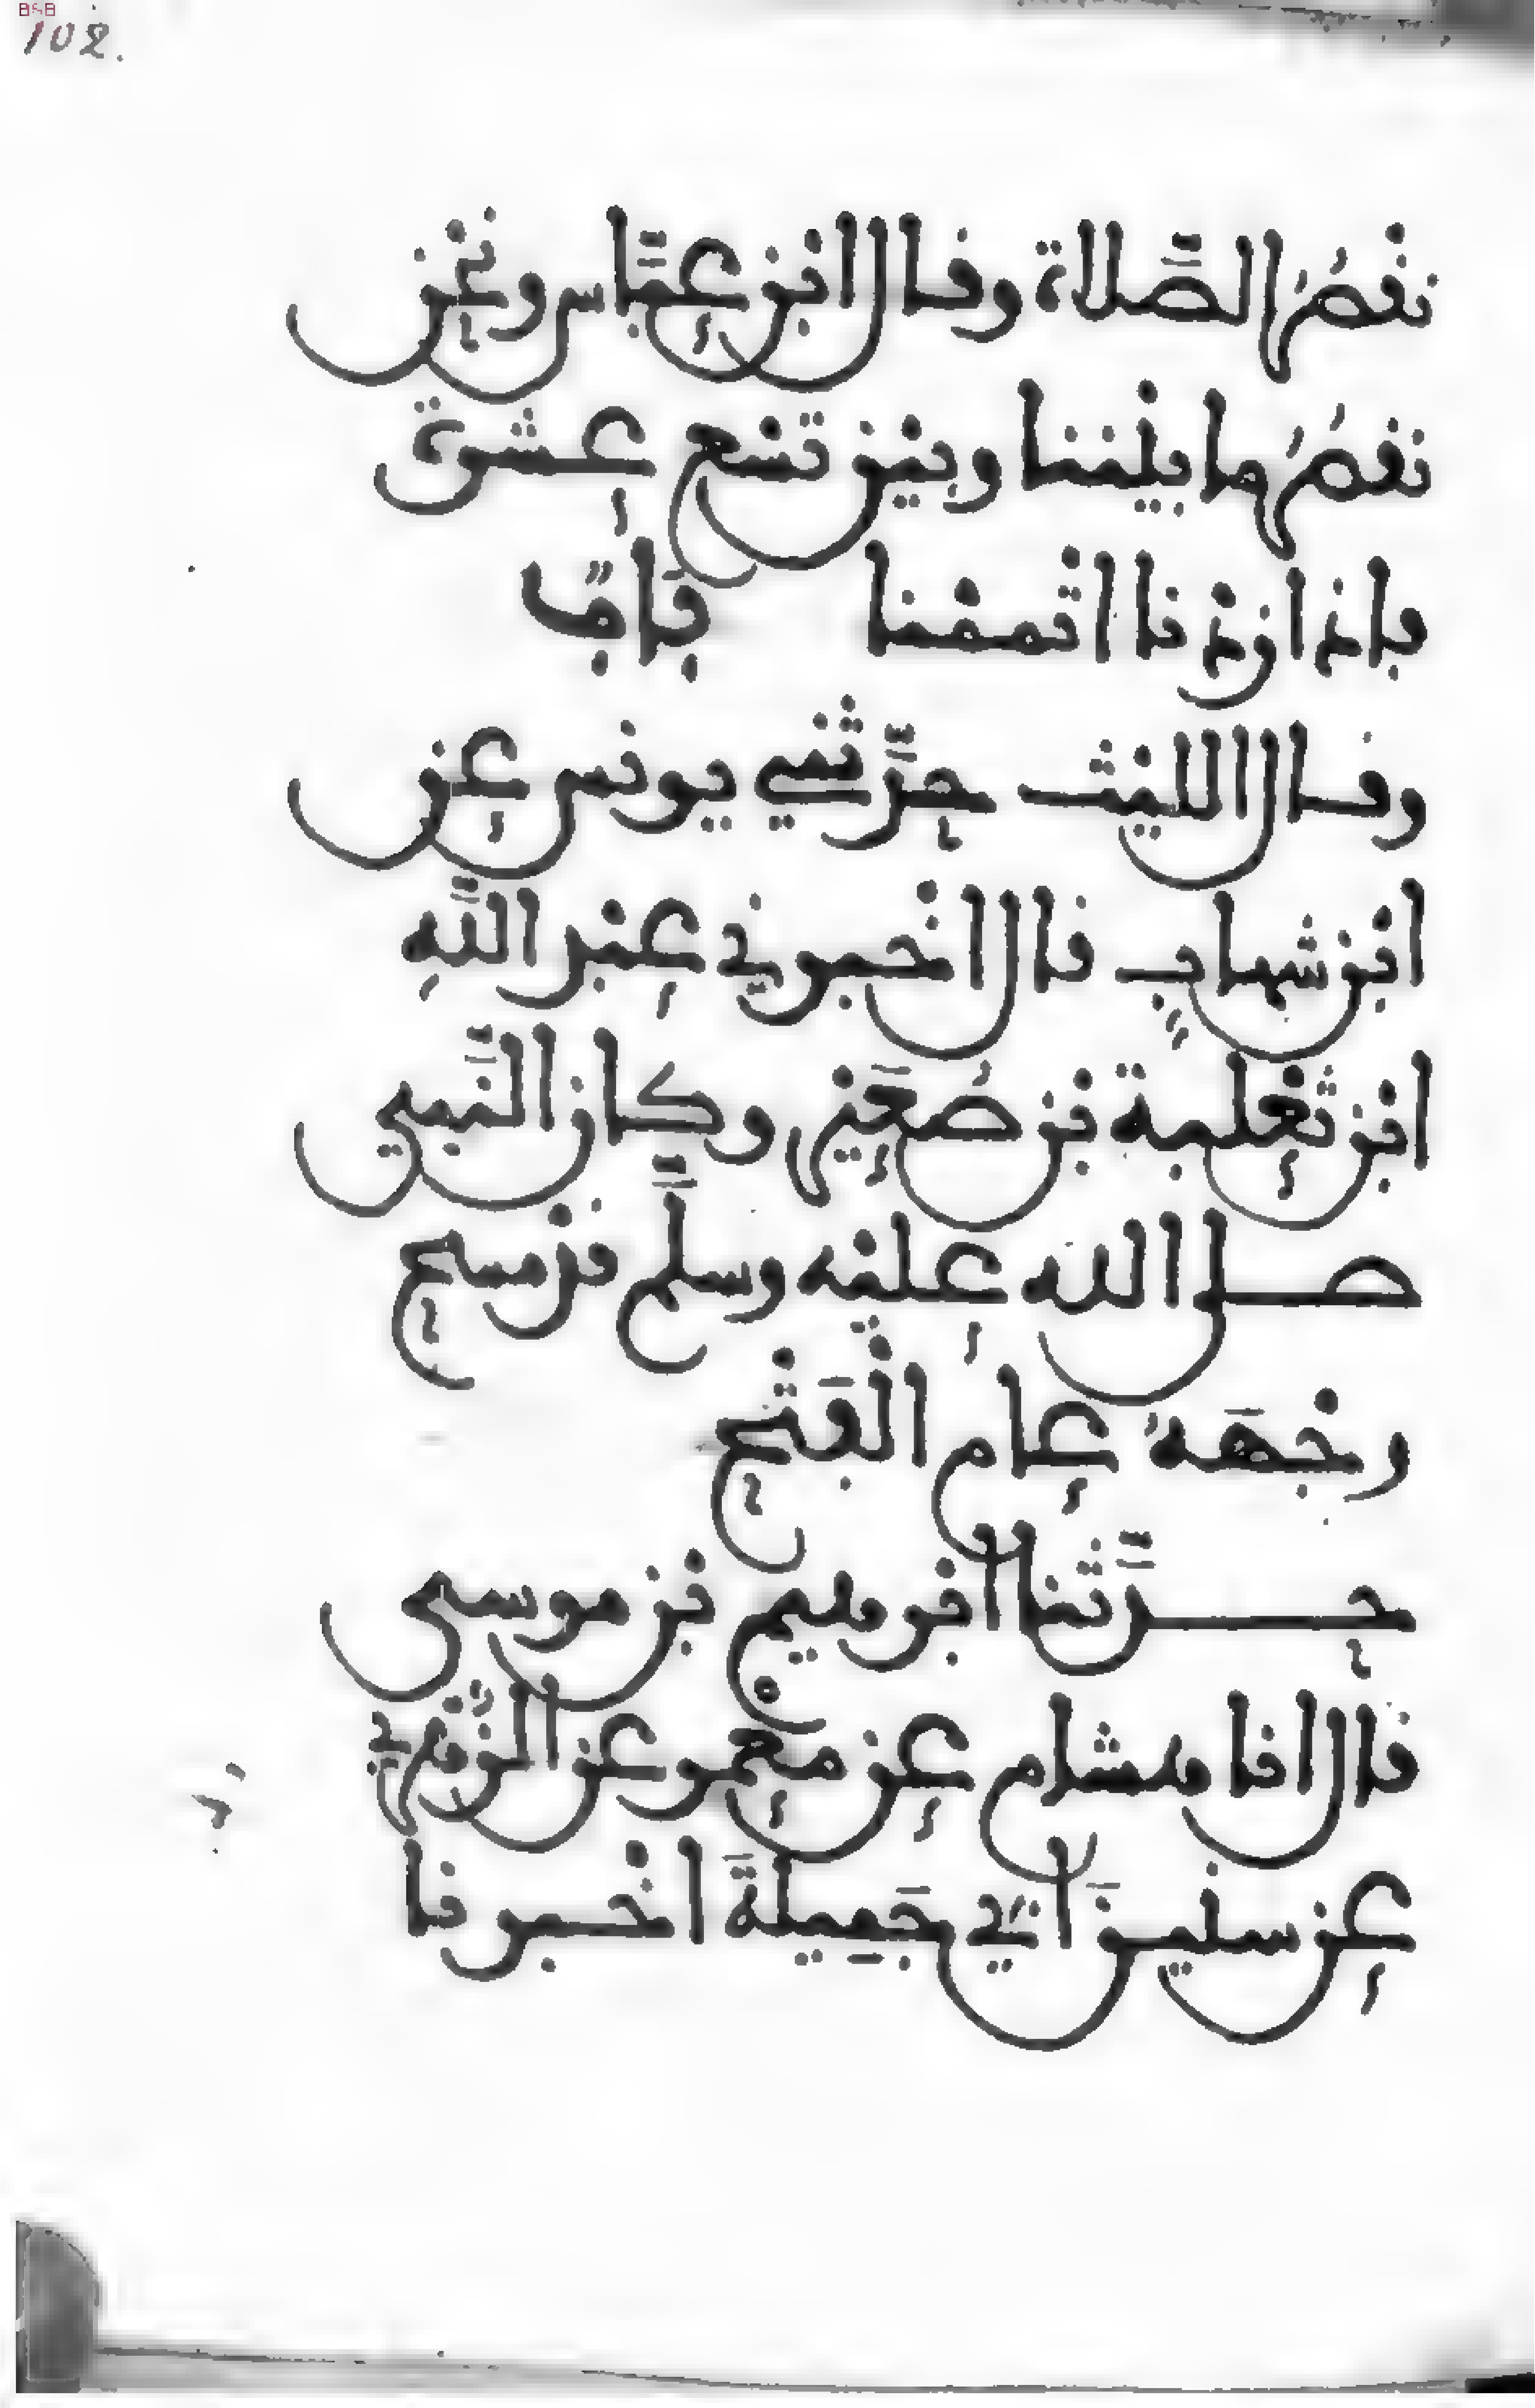 BSB
102.
نقصر الصَّلاة وقال ابن عبَّاس ونحن
نقصر ما بيننا وبين تسع عشرة
فاذا زدنا اتممنا باب
وقال الليث حدَّثني يونس عن
ابن شهاب قال اخبرني عبد اللَّهِ
ابن ثعلبة بن صُعَير وكان النَّبي
صلى الله عليه وسلَّم قد مسح
وجْهَهُ عام الْفَتْح
حدَّثنا ابرهيم بن موسى
قال انا هشام عن معْمر عن الزُّهري
عن سنين اَبي جَمِيلةَ اخْبرنا